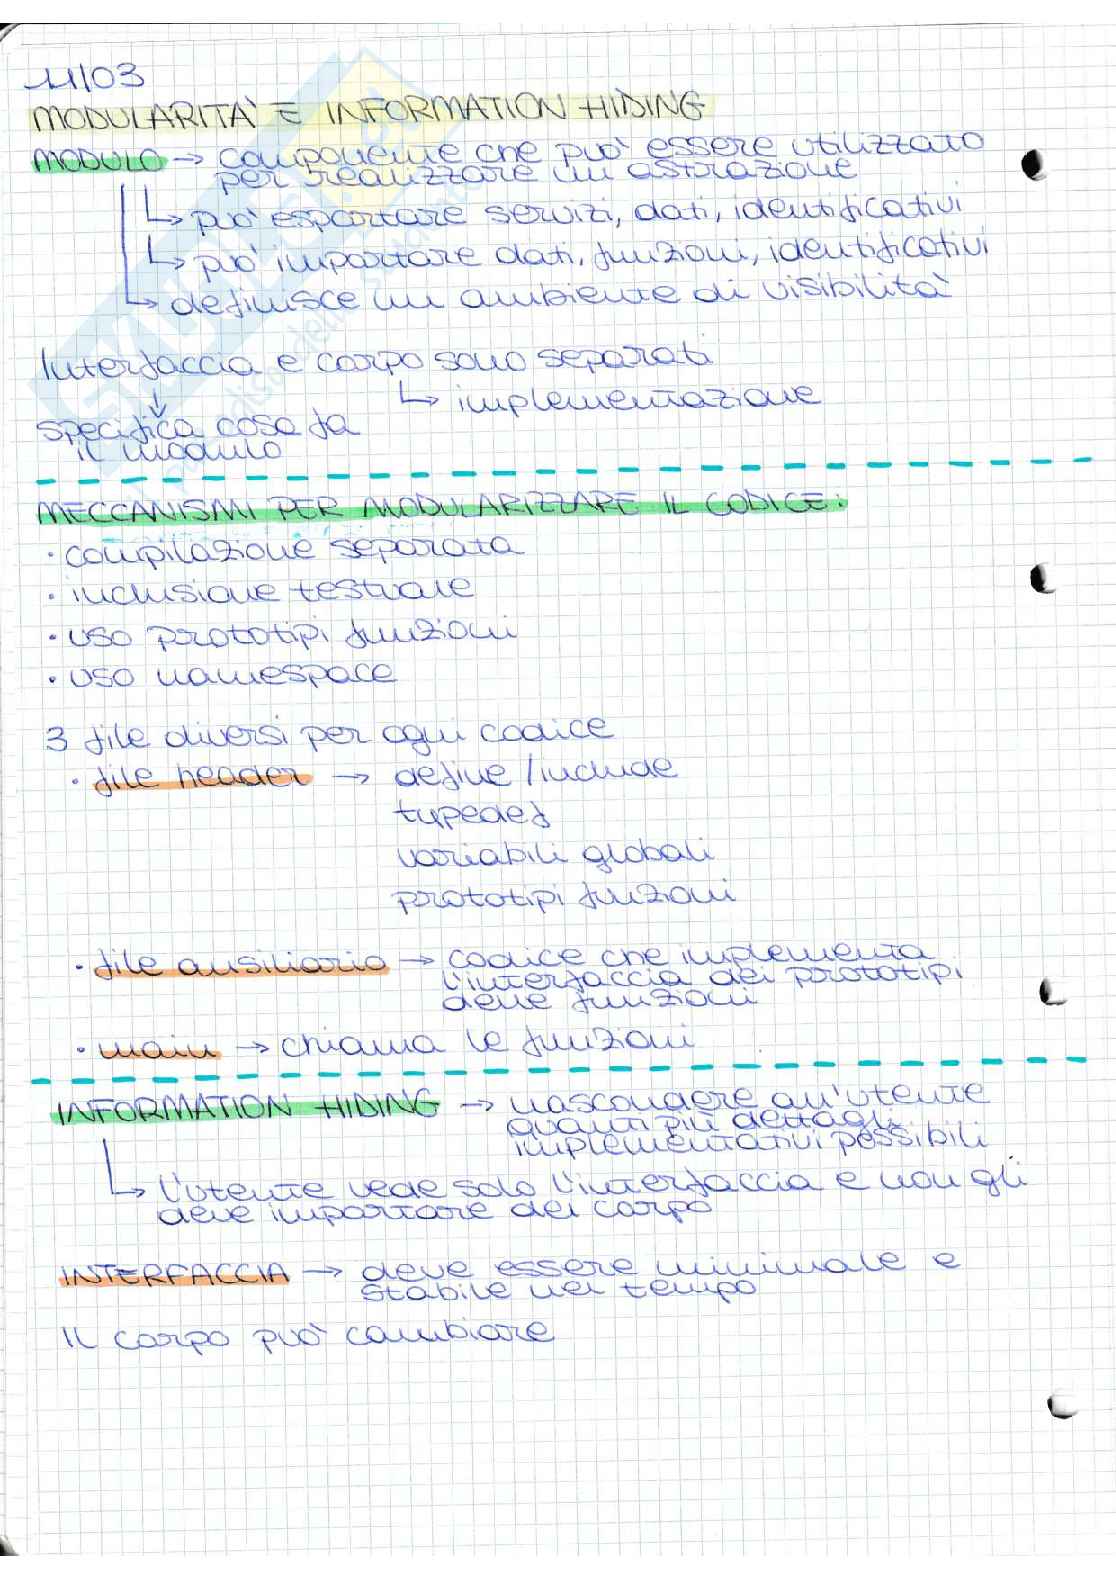 11/03
MODULARITÀ E INFORMATION HIDING
MODULO → componente che può essere utilizzato
per realizzare un astrazione
↳ può esportare servizi, dati, identificativi
↳ può importare dati, funzioni, identificativi
↳ definisce un ambiente di visibilità
Interfaccia e corpo sono separati
↳ implementazione
specifica cosa fa
il modulo
MECCANISMI PER MODULARIZZARE IL CODICE:
· compilazione separata
· inclusione testuale
· uso prototipi funzioni
· uso namespace
3 file diversi per ogni codice
· file header → define / include
typedef
variabili globali
prototipi funzioni
· file ausiliario → codice che implementa
l'interfaccia dei prototipi
delle funzioni
· main → chiama le funzioni
INFORMATION HIDING → nascondere all'utente
quanti più dettagli
implementativi possibili
↳ l'utente vede solo l'interfaccia e non gli
deve importare del corpo
INTERFACCIA → deve essere minimale e
stabile nel tempo
Il corpo può cambiare